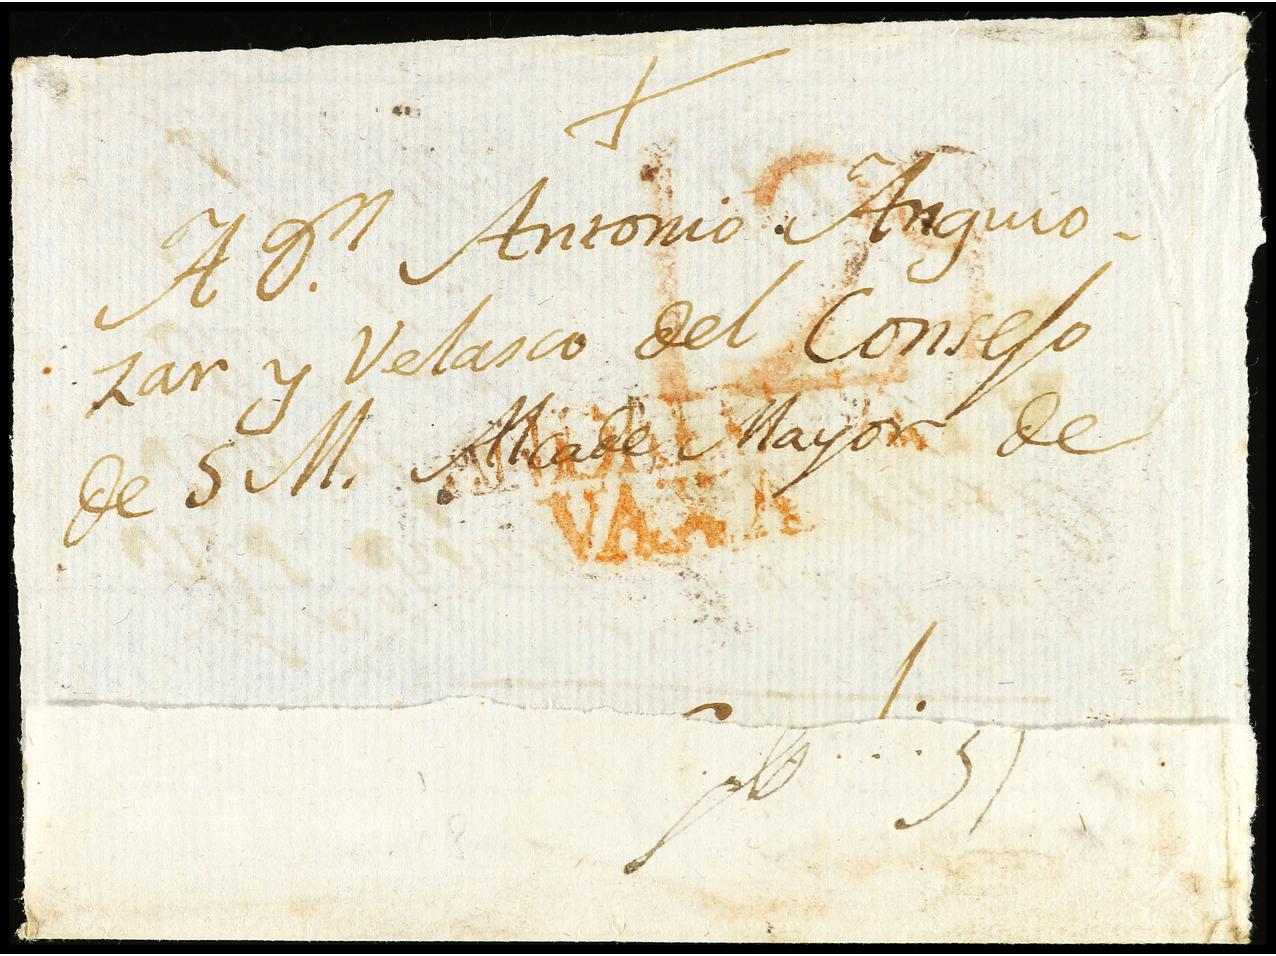 A Dn. Antonio Anguio-
zar y Velasco del Consejo
de S M. Alcade Mayor de
12
VAXA